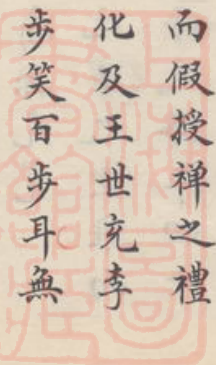 而假授禅之禮
化及王世充李
步笑百步耳無